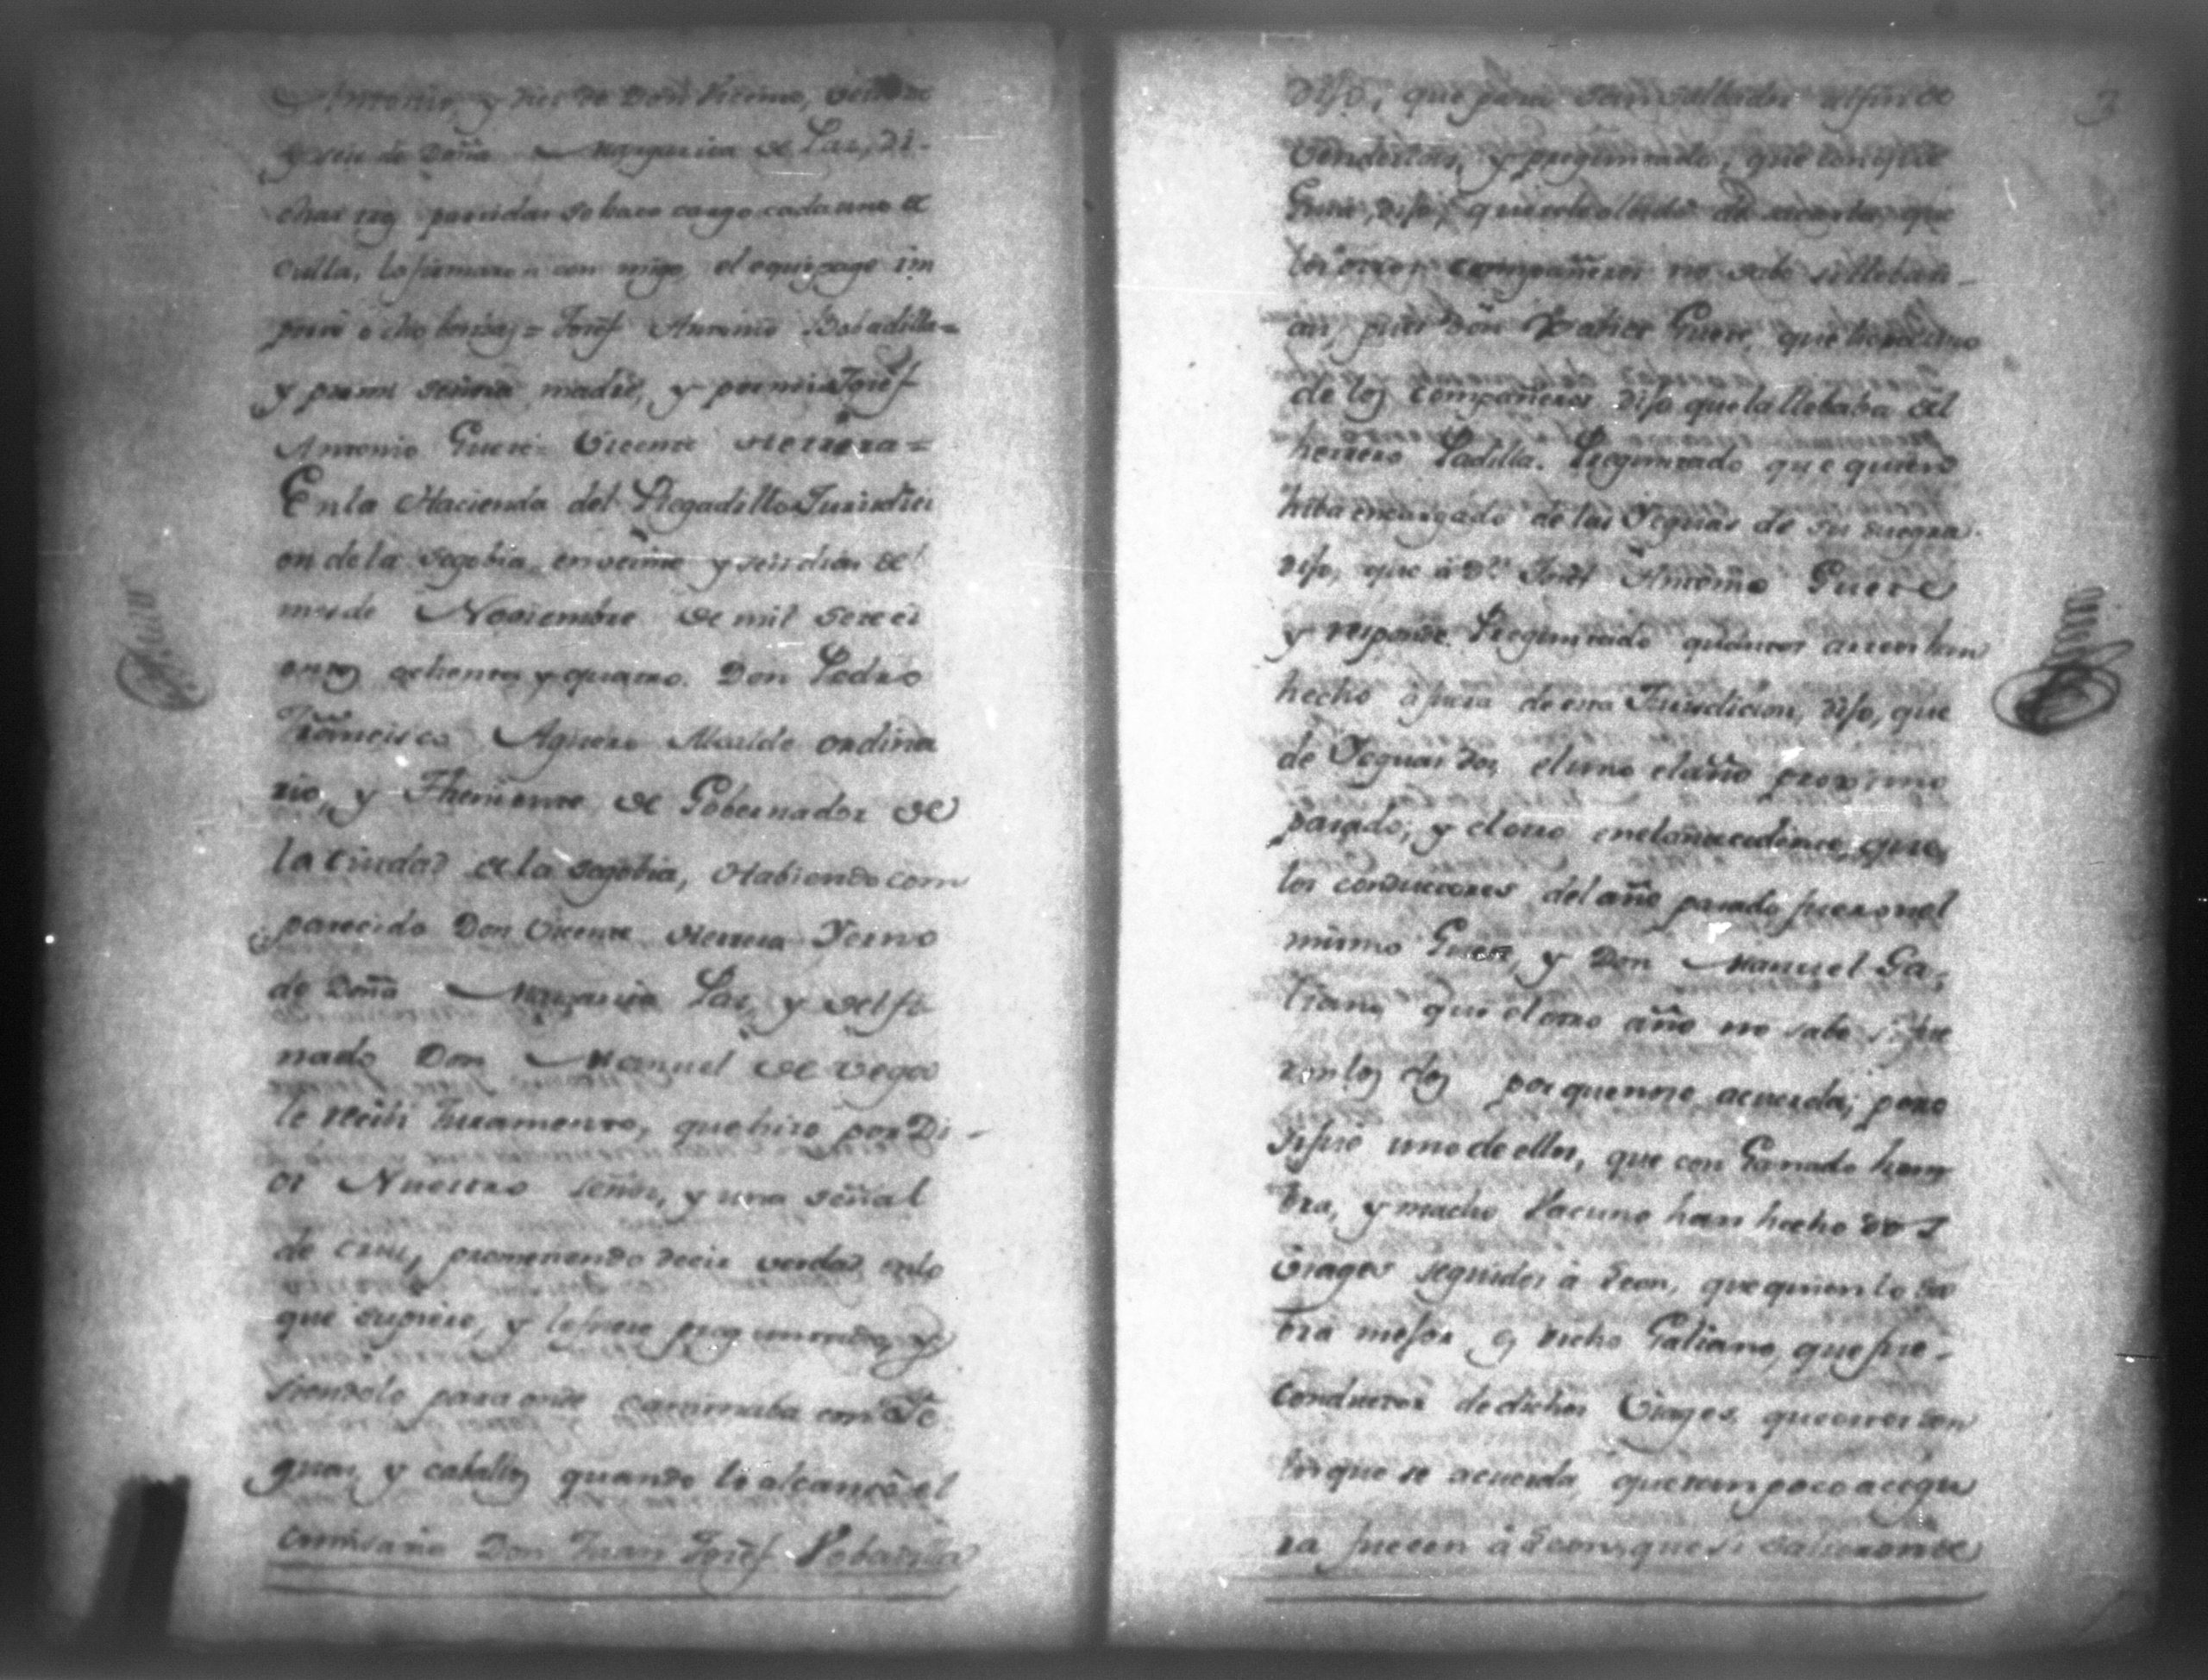 Antonio, y dies de Don Vicente, veinte
y seis de Doña Margarita de Paz, di-
chas tres partidas so baxo cargo cada uno de
ella, lo firmaron con migo, el equipage im
Josef Antonio Bobadilla=
y por mi señora madre, y por mi Josef
Antonio Guere= Vicente Herrera=
En la Hacienda del Pregadillo Jurisdici
on de la Segobia, en veinte y seis dias del
mes de Noviembre de mil seteci
entos ochenta y quatro. Don Pedro
Francisco Aguero Alcalde ordina
rio, y Theniente de Gobernador de
la Ciudad de la Segobia, Habiendo com
parecido Don Vicente Herrera Yerno
de Doña Margarita Paz, y del fi
nado Don Manuel de Vegas
le recibi Juramento, que hizo por Di-
os Nuestro Señor, y una señal
de cruz, prometiendo decir verdad en lo
que supiere, y le fuere preguntado, y
siendole para onde caminaba con Ye
guas y caballos quando lo alcanzó el
comisario Don Juan Josef Bobadilla
3
dijo, que para San Salbador a fin de
venderlas, y preguntado, que con que
Guia, dijo, que se le olbidó de sacarla, que
los otros compañeros no sabe si lleban-
an, pues Don Guere, que hera uno
de los compañeros dijo que la llebaba el
herrero Padilla. Preguntado que quien
hiba encargado de las Yeguas de su suegra
dijo, que a Dn. Josef Antonio Guere
y responde. Preguntado quantos han
hecho afuera de esta Jurisdicion, dijo, que
de Yeguas dos, el uno el año proximo
pasado, y el otro en el antecedente, que
los conductores del año pasado fueron el
mismo Guere, y Don Manuel Ga-
liano, que el otro año no sabe si fue
ron los dos porque no se acuerda; pero
si fue uno de ellos, que con Ganado hem
bra, y macho Vacuno han hecho dos
Viages seguidos à Leon, que quien lo sa
bra mejor es dicho Galiano, que fue-
conductor de dichos Viages, que estos son
los que se acuerda, que tampoco asegu
ra fuesen à Leon, que si salieron de